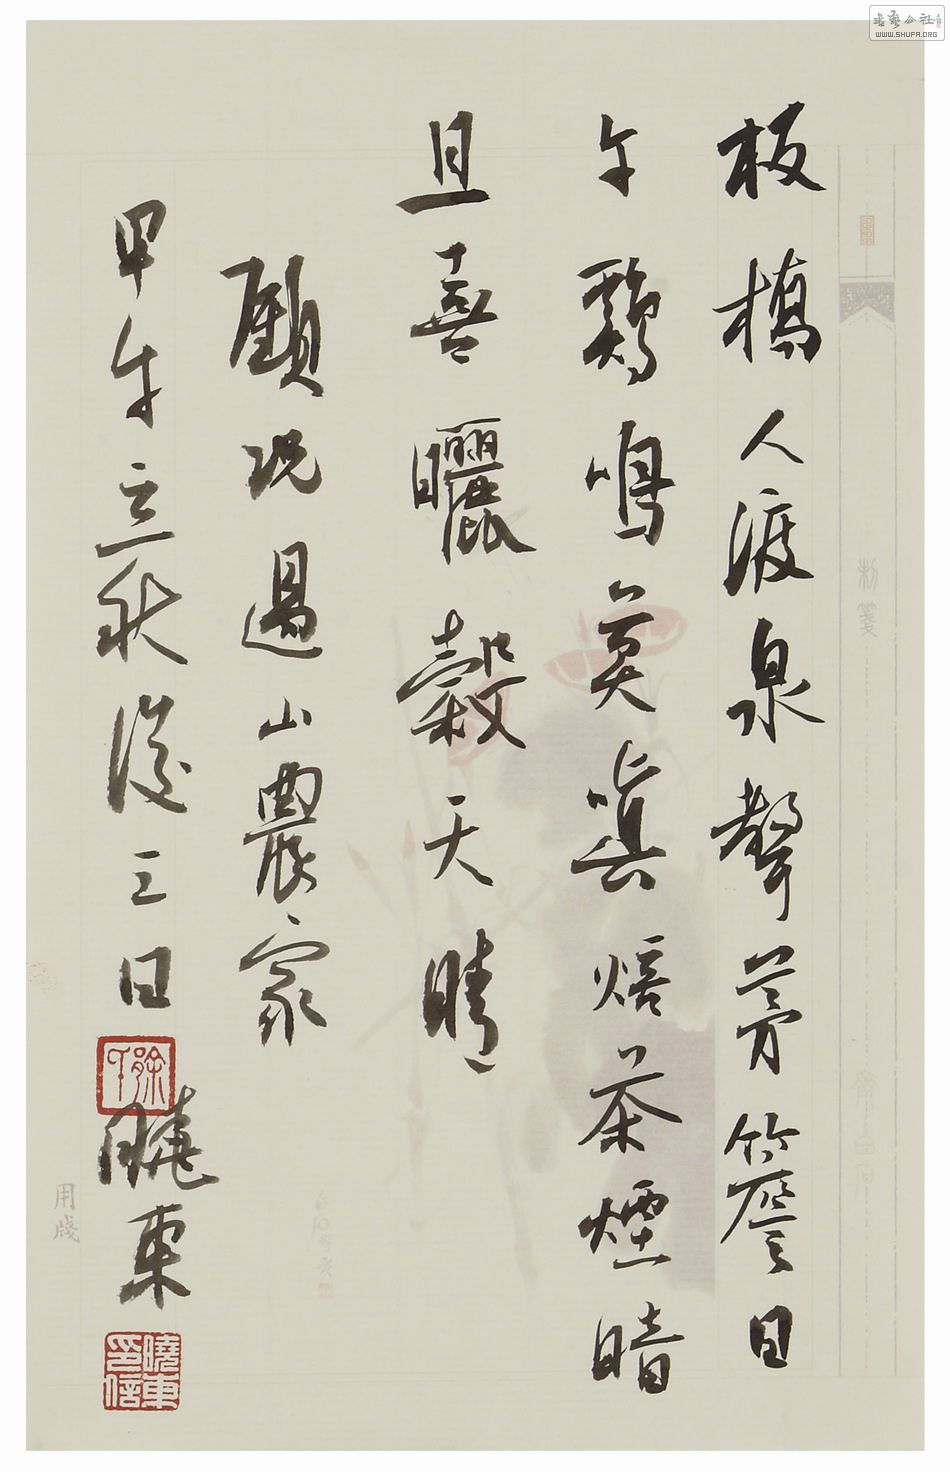 板橋人渡泉聲茅簷日
午鷄鳴莫嗔焙茶煙暗
且喜曬穀天晴
顧況過山農家
甲午立秋後三日
曉東
徐
曉東
印信
用牋
书艺公社
WWW.SHUFA.ORG